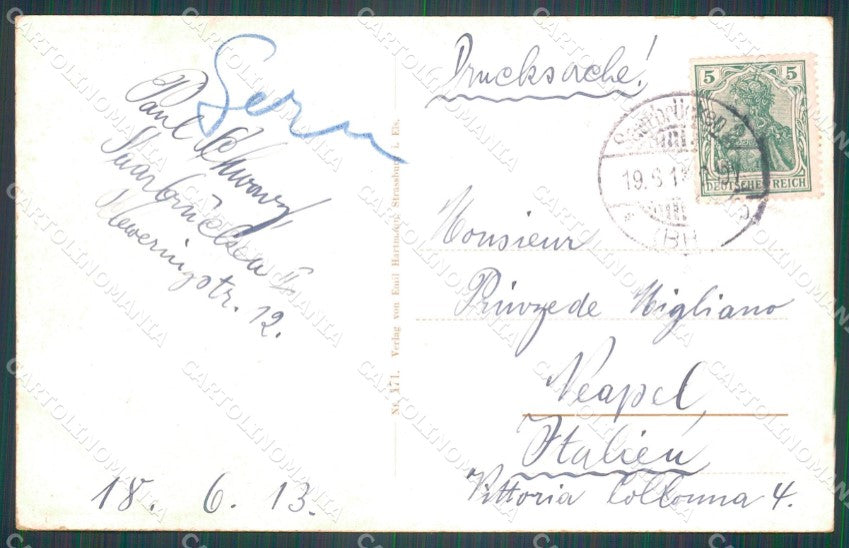 Paul Schwarz
Saarbrücken II
12.
18. 6. 13.
Nr. 171. Verlag von Emil Hartmann, Strassburg i. Els.
Drucksache!
5 5
DEUTSCHES REICH
Saarbrücken
19.6.13
Monsieur
Migliano
Neapel
Italien
Vittoria Collonna 4.
CARTOLINOMANIA